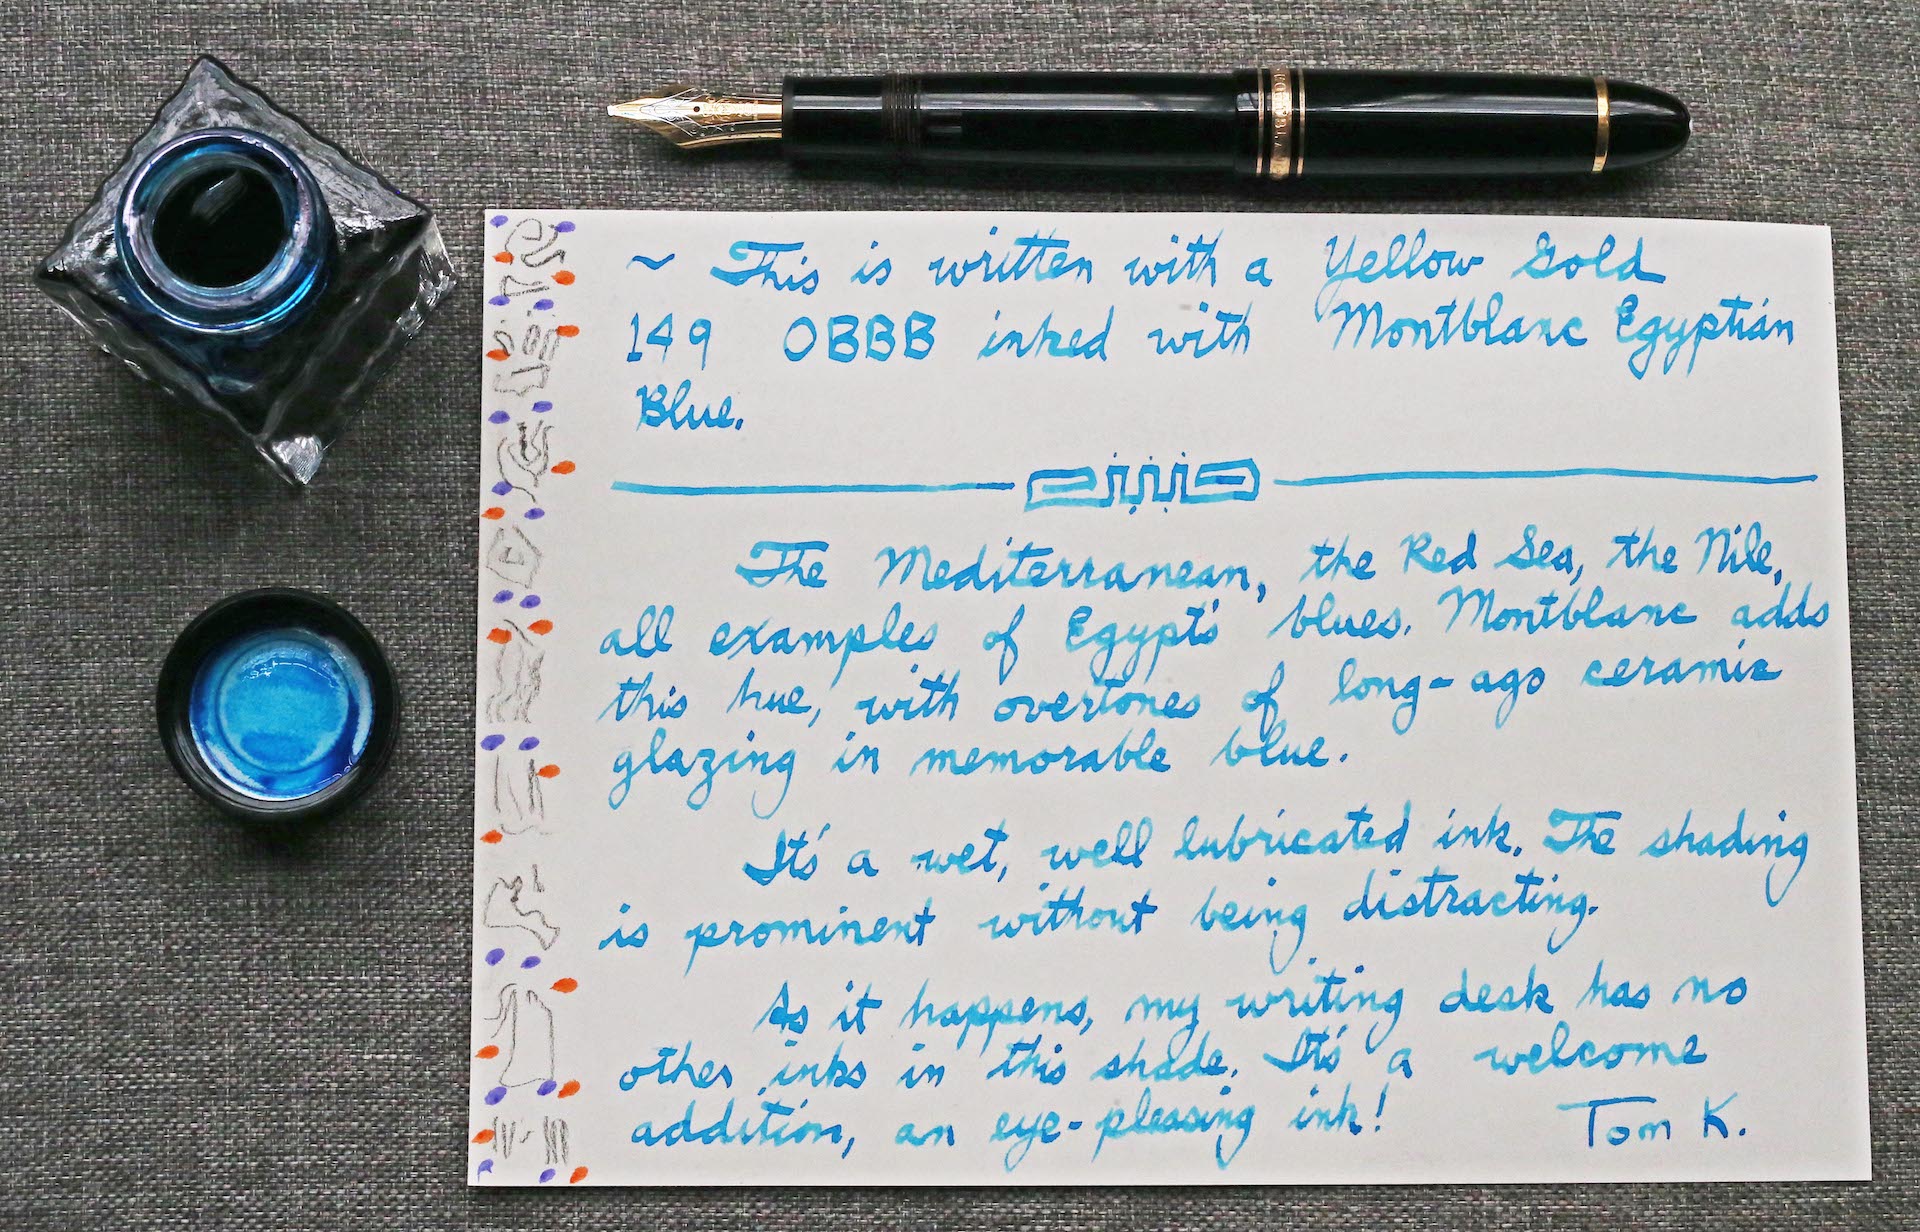 ~ This is written with a Yellow Gold
149 OBBB inked with Montblanc Egyptian
Blue.
The Mediterranean, the Red Sea, the Nile,
all examples of Egypt's blues. Montblanc adds
this hue, with overtones of long-ago ceramic
glazing in memorable blue.
It's a wet, well lubricated ink. The shading
is prominent without being distracting.
As it happens, my writing desk has no
other inks in this shade. It's a welcome
addition, an eye-pleasing ink!
Tom K.